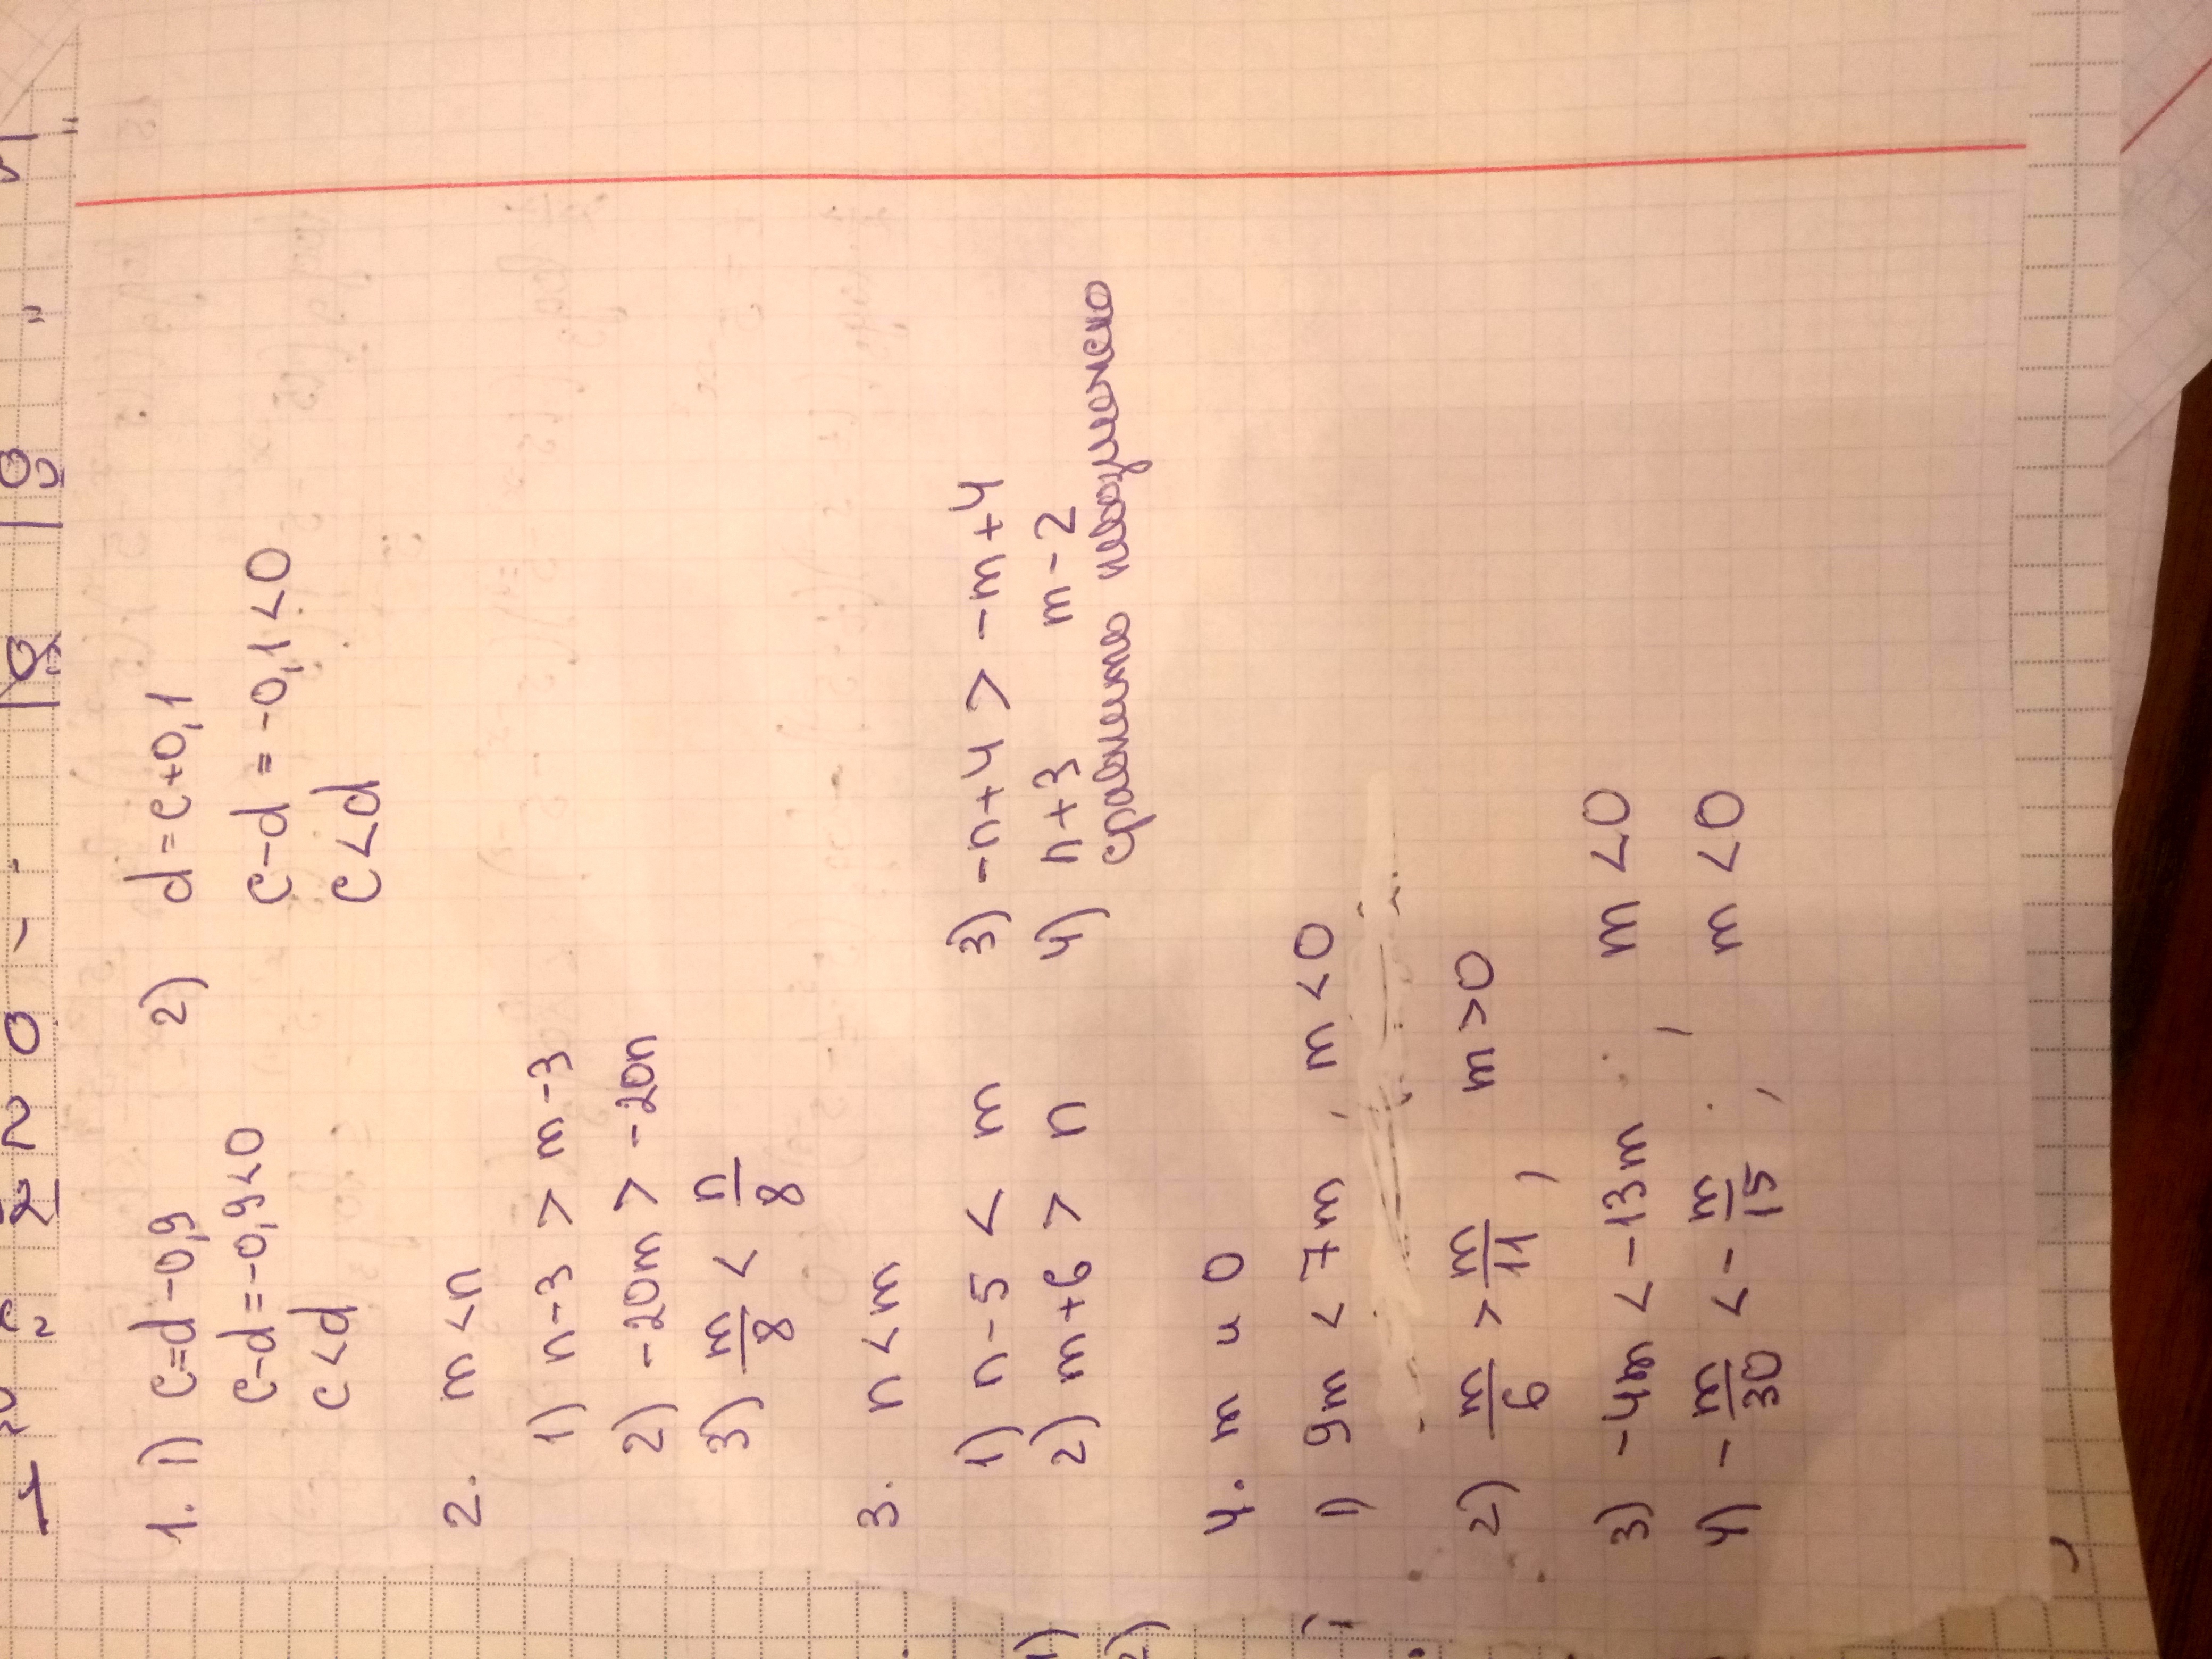 1. 1) c=d-0,9 2) d=c+0,1
c-d=-0,9<0 c-d=-0,1<0
c<d c<d
2. m<n
1) n-3 > m-3
2) -20m > -20n
3) m/8 < n/8
3. n<m
1) n-5 < m 3) -n+4 > -m+4
2) m+6 > n 4) n+3 m-2
сравнить невозможно
4. m и 0
1) 9m < 7m, m<0
2) m/6 > m/11, m>0
3) -4m < -13m, m<0
4) -m/30 < -m/15, m<0